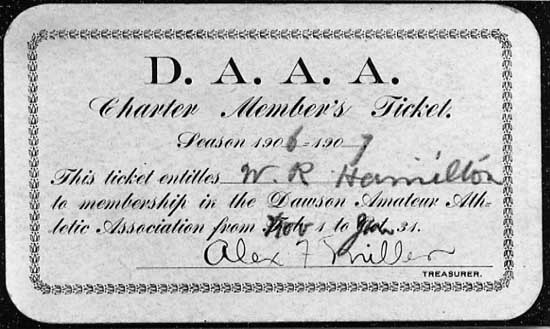 D. A. A. A.
Charter Member's Ticket.
Season 1906-1907
This ticket entitles W. R Hamilton
to membership in the Dawson Amateur Ath-
letic Association from Nov 1 to 31.
Alex F Miller
TREASURER.